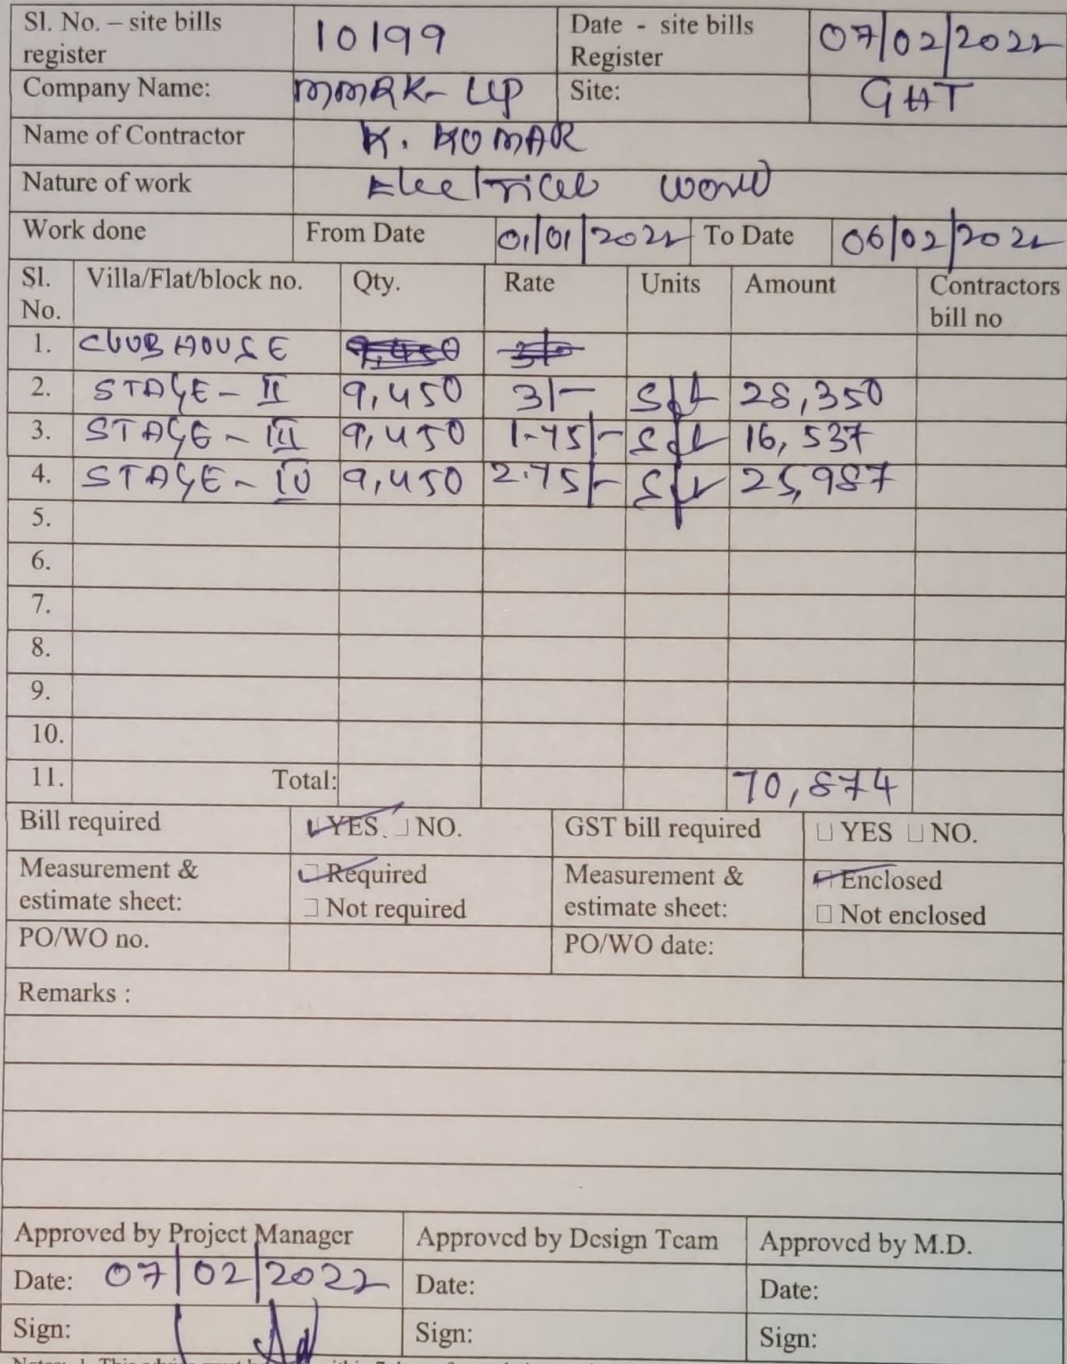 Sl. No. – site bills register 10199 Date - site bills Register 07/02/2022
Company Name: MMRK-LLP Site: GHT
Name of Contractor K. KUMAR
Nature of work Electrical work
Work done From Date 01/01/2022 To Date 06/02/2022
Sl. No. Villa/Flat/block no. Qty. Rate Units Amount Contractors bill no
1. CLUB HOUSE 9,450
2. STAGE - II 9,450 3/- Sft 28,350
3. STAGE - III 9,450 1.75/- Sft 16,537
4. STAGE - IV 9,450 2.75/- Sft 25,987
5.
6.
7.
8.
9.
10.
11. Total: 70,874
Bill required YES NO. GST bill required YES NO.
Measurement & estimate sheet: Required Not required Measurement & estimate sheet: Enclosed Not enclosed
PO/WO no. PO/WO date:
Remarks :
Approved by Project Manager Approved by Design Team Approved by M.D.
Date: 07/02/2022 Date: Date:
Sign: Sign: Sign: